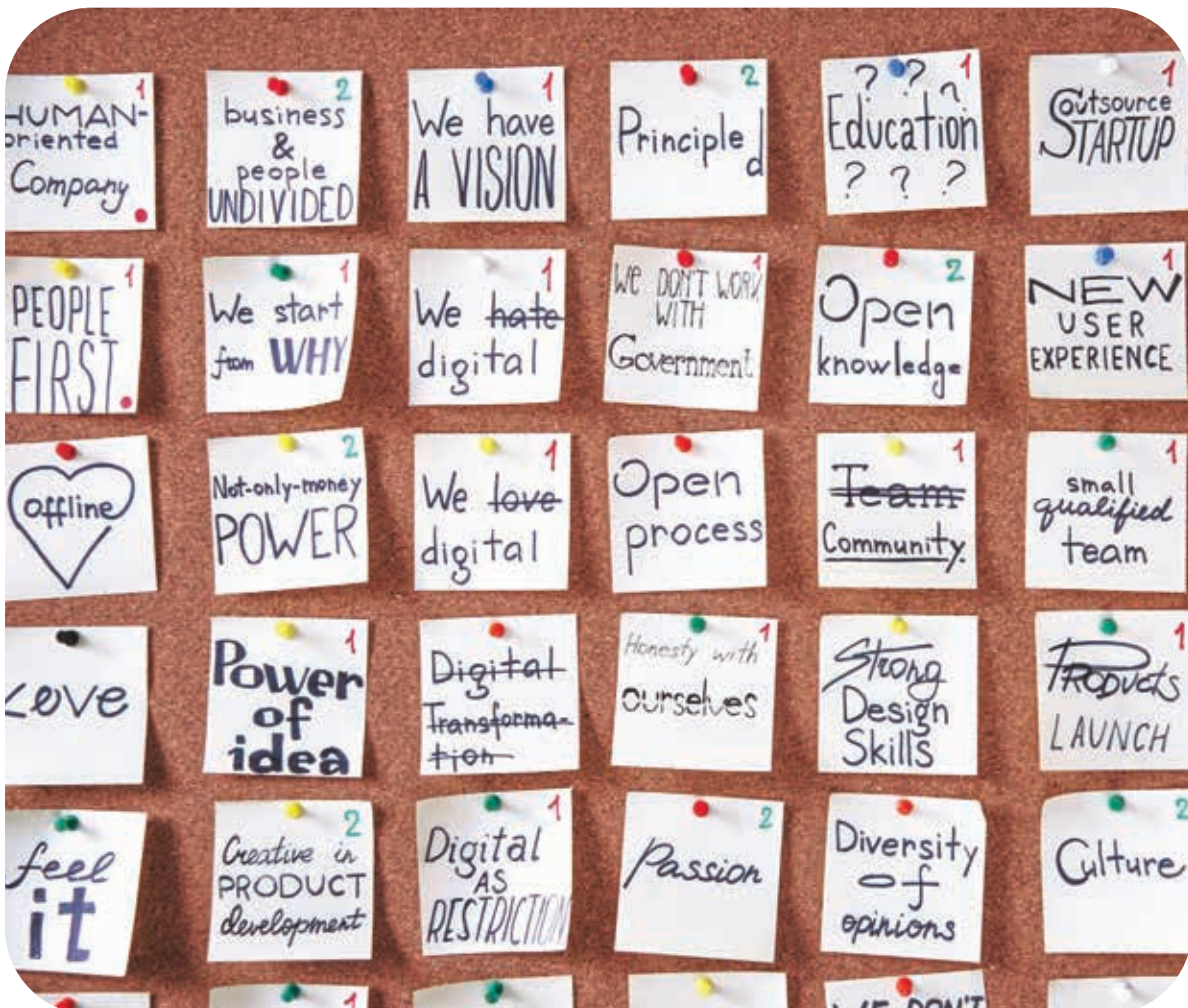 HUMAN-
oriented
Company
1
business
&
people
UNDIVIDED
2
We have
A VISION
1
Principled
2
? ? ?
Education
? ? ?
1
Outsource
STARTUP
1
PEOPLE
FIRST.
1
We start
from WHY
1
We hate
digital
1
We DON'T WORK
WITH
Government
1
Open
knowledge
2
NEW
USER
EXPERIENCE
1
offline
Not-only-money
POWER
2
We love
digital
1
Open
process
Team
Community.
1
small
qualified
team
1
Love
Power
of
idea
1
Digital
Transforma-
tion
Honesty with
ourselves
1
Strong
Design
Skills
PRODUCTS
LAUNCH
1
feel
it
Creative in
PRODUCT
development
2
Digital
AS
RESTRICTION
1
Passion
2
Diversity
of
opinions
Culture
2
1
WE DON'T